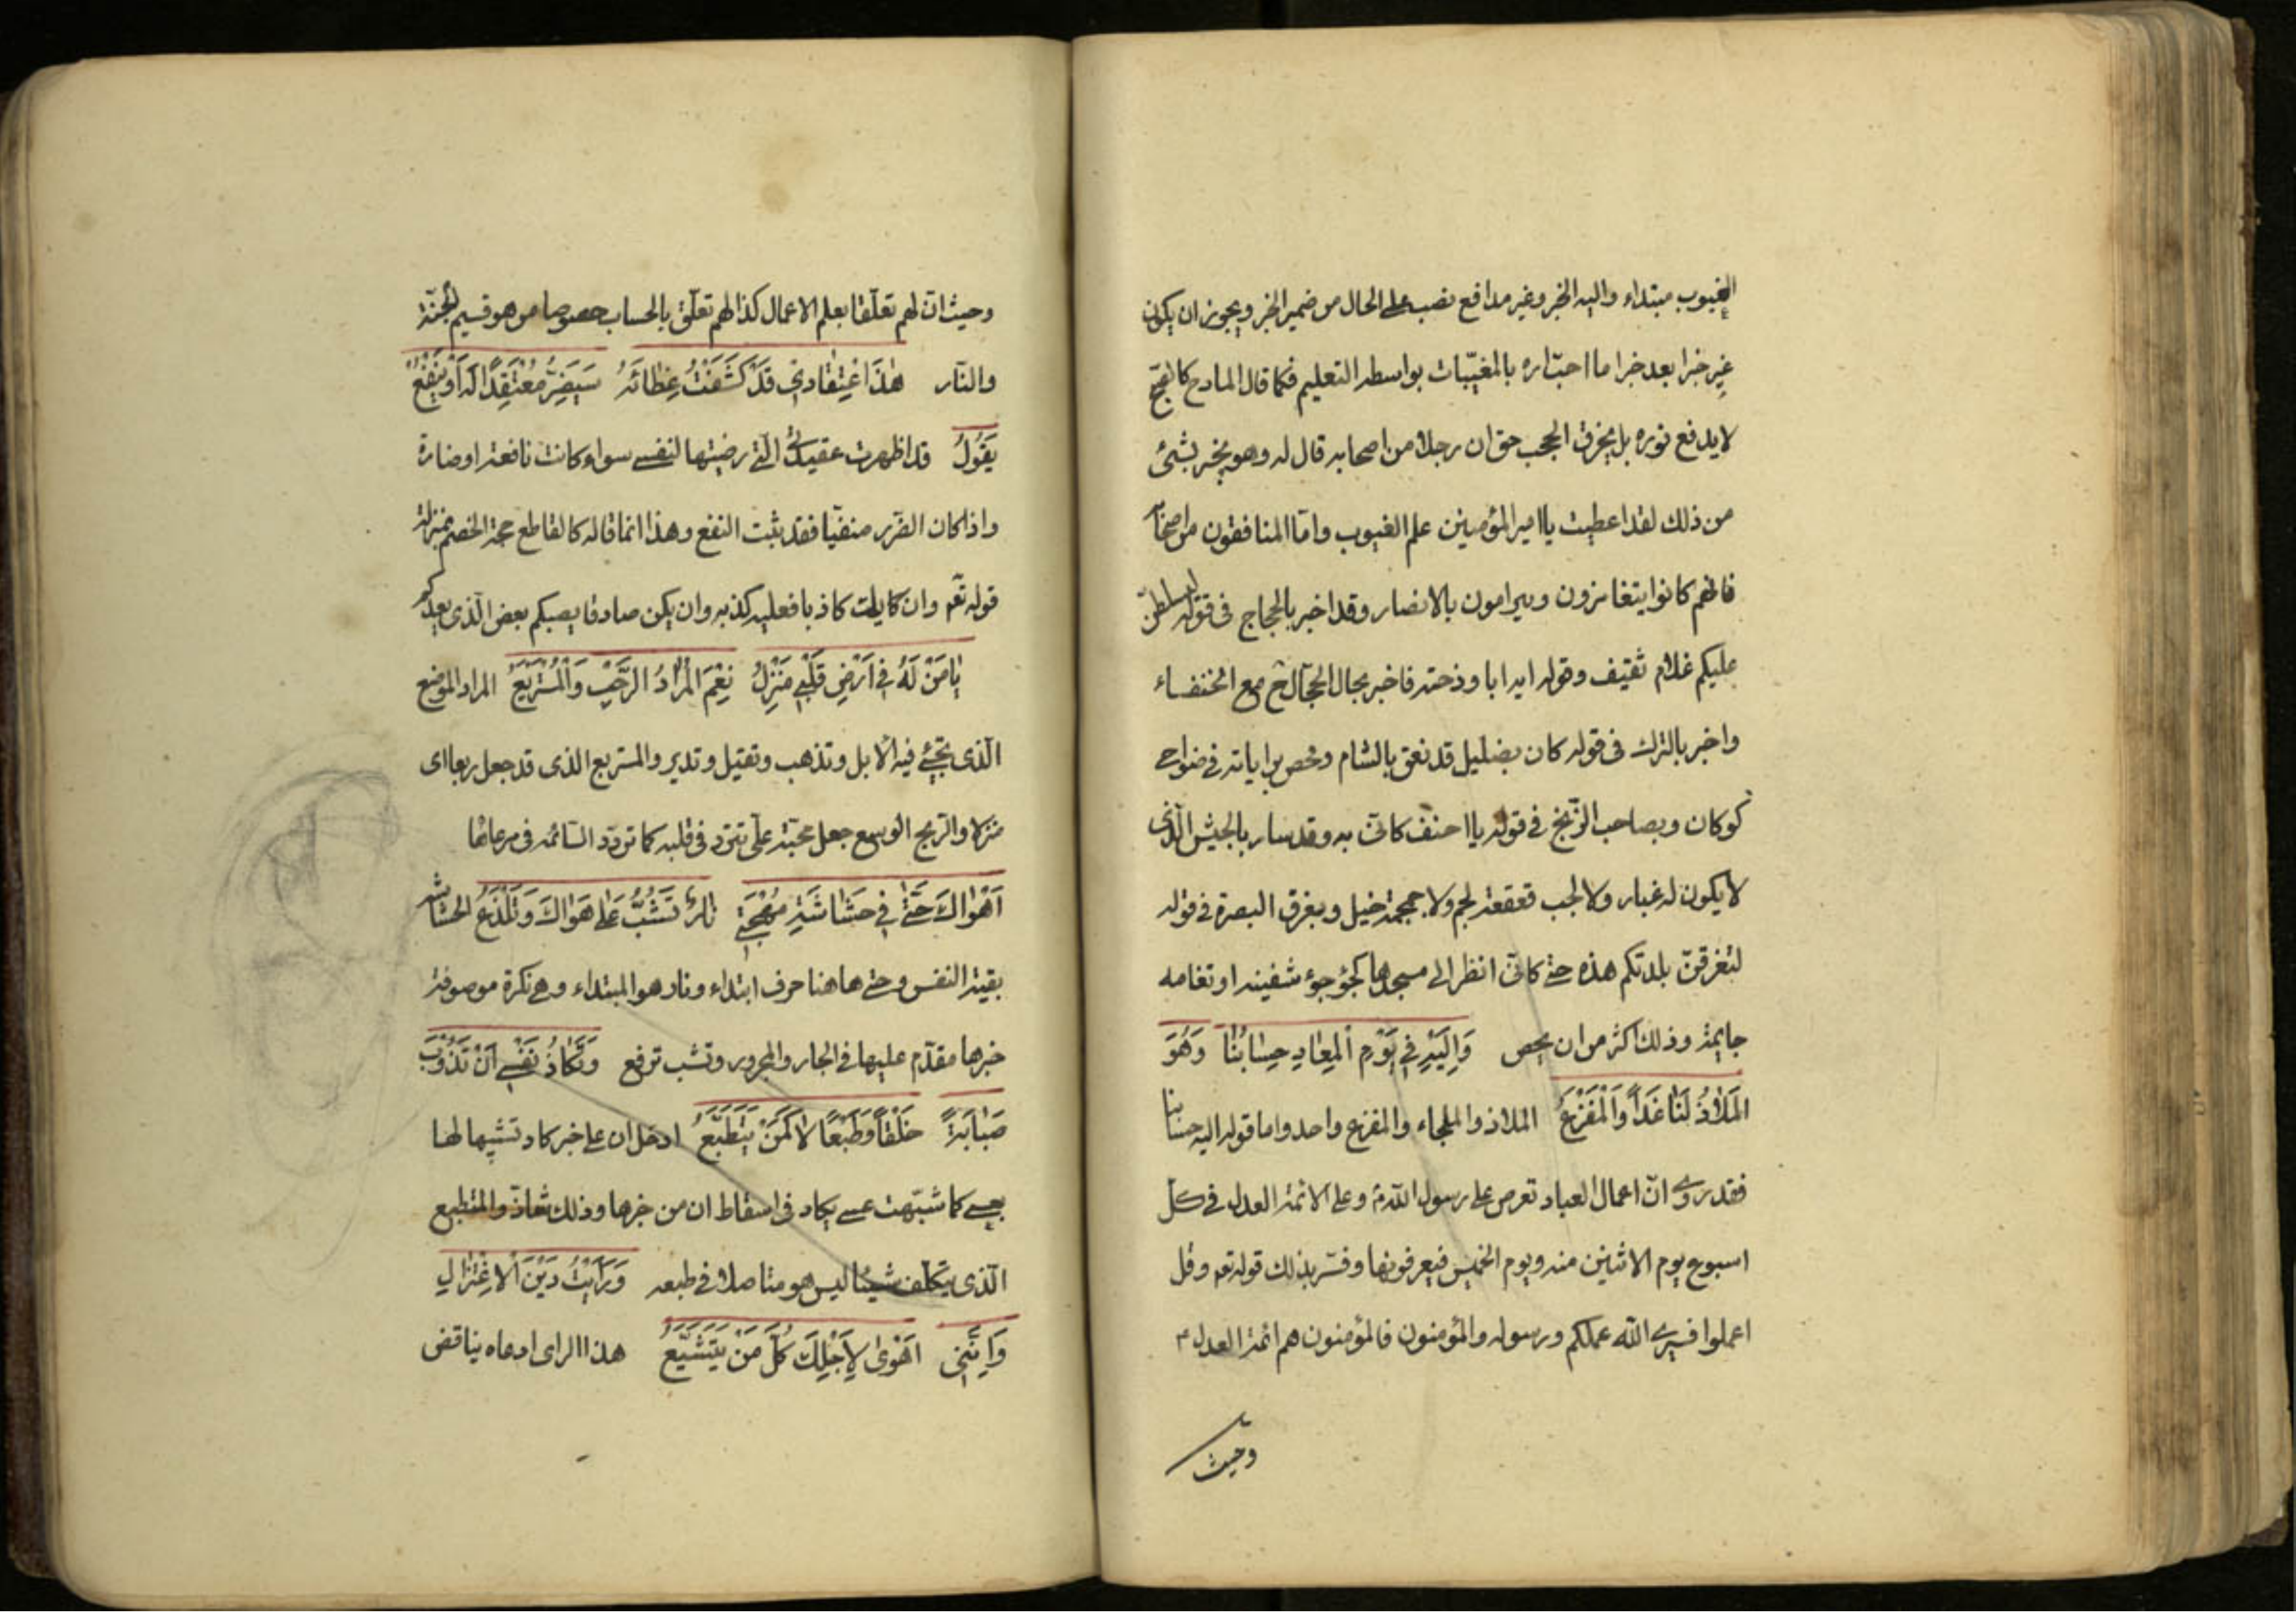 الغيوب مبتداء واليه الخبر وغير مدافع نصب على الحال من ضمير الخبر ويجوز ان يكون
غير خبرا بعد خبر اما اخباره بالمغيّبات بواسطه التعليم فكما قال المادح كالصبح
لا يدفع نوره بل يخرق الحجب حتى ان رجلا من اصحابه قال له وهو يخبر بشئ
من ذلك لقد اعطيت يا امير المؤمنين علم الغيوب وامّا المنافقون من اصحابه
فانهم كانوا يتغامزون ويترامون بالابصار وقد اخبر بالحجاج فى قوله ليسلطنّ
عليكم غلام ثقيف وقوله ايه ابا وذحته فاخبر بحال الحجاج مع الخنفساء
واخبر بالترك فى قوله كان بضليل قد نعق بالشام وفحص براياته فى ضواحى
كوكان وبصاحب الزّنج فى قوله يا احنف كانّى به وقد سار بالجيش الذى
لا يكون له غبار ولا لجب قعقعة لجم ولا حمحمة خيل وبغرق البصرة فى قوله
لتغرقنّ بلدتكم هذه حتى كانّى انظر الى مسجدها كجؤجؤ سفينه او نعامه
جاثمة وذلك اكثر من ان يحصى وَاِلَيْهِ فِى يَوْمِ الْمَعَادِ حِسَابُنَا وَهُوَ
الْمَلَاذُ لَنَا غَدًا وَالْمَفْزَعُ الملاذ والملجاء والمفزع واحد واما قوله اليه حسابنا
فقد روى انّ اعمال العباد تعرض على رسول الله ص وعلى الائمة العدل فى كل
اسبوع يوم الاثنين منه ويوم الخميس فيعرفونها وفسّر بذلك قوله تعم وقل
اعملوا فسيرى الله عملكم ورسوله والمؤمنون فالمؤمنون هم ائمة العدل م
وحيث
وحيث انّ لهم تعلّقا بعلم الاعمال كذا لهم تعلّق بالحساب خصوصا من هو قسيم الجنّة
والنّار هٰذَا اعْتِقَادِى قَدْ كَشَفْتُ غِطَائَهُ سَيَضُرُّ مُعْتَقِدًا لَهُ اَوْ يَنْفَعُ
يَقُولُ قد اظهرت عقيدتى الّتى رضيتها لنفسى سواء كانت نافعة او ضارة
واذا كان الضرر منفيّا فقد ثبت النفع وهذا انما قاله كالقاطع حجة الخصم بمنزلة
قوله تعم وان كا يك كاذبا فعليه كذبه وان يكن صادقا يصبكم بعض الّذى يعدكم
يَا مَنْ لَهُ فِى اَرْضِ قَلْبِى مَنْزِلُ نِعْمَ الْمُرَادُ الرَّحْبُ وَالْمُسْتَرْبَعُ المراد الموضع
الّذى تجئ فيه الابل وتذهب وتقبل وتدبر والمستربع الذى قد جعل ربعا اى
منزلا والربع الوسيع جعل محبّة على تتردّد فى قلبه كما تردّد السّائمه فى مرعاها
اَهْوَاكَ حَتّٰى فِى حَشَاشَةِ مُهْجَتِى نَارٌ تَشُبُّ عَلَى هَوَاكَ وَتَلْذَعُ الحشاشه
بقية النفس وحتى هاهنا حرف ابتداء ونار هو المبتداء وهى نكرة موصوفة
خبرها مقدّم عليها فى الجار والمجرور وتشب ترفع وَتَكَادُ نَفْسِى اَنْ تَذُوْبَ
صَبَابَةً خَلْقًا وَطَبْعًا لَا كَمَنْ يَتَطَبَّعُ ادخل ان على خبر كاد تشبيها لها
بعسى كما شبّهت عسى بكاد فى اسقاط ان من خبرها وذلك شاذّ والمتطبع
الّذى يتكلّف شيئا ليس هو متاصلا فى طبعه وَرَاَيْتُ دِيْنَ الْاِعْتِزَالِ
وَاِنَّنِى اَهْوٰى لِاَجْلِكَ كُلَّ مَنْ يَتَشَيَّعُ هذا الراى ادعاه يناقض